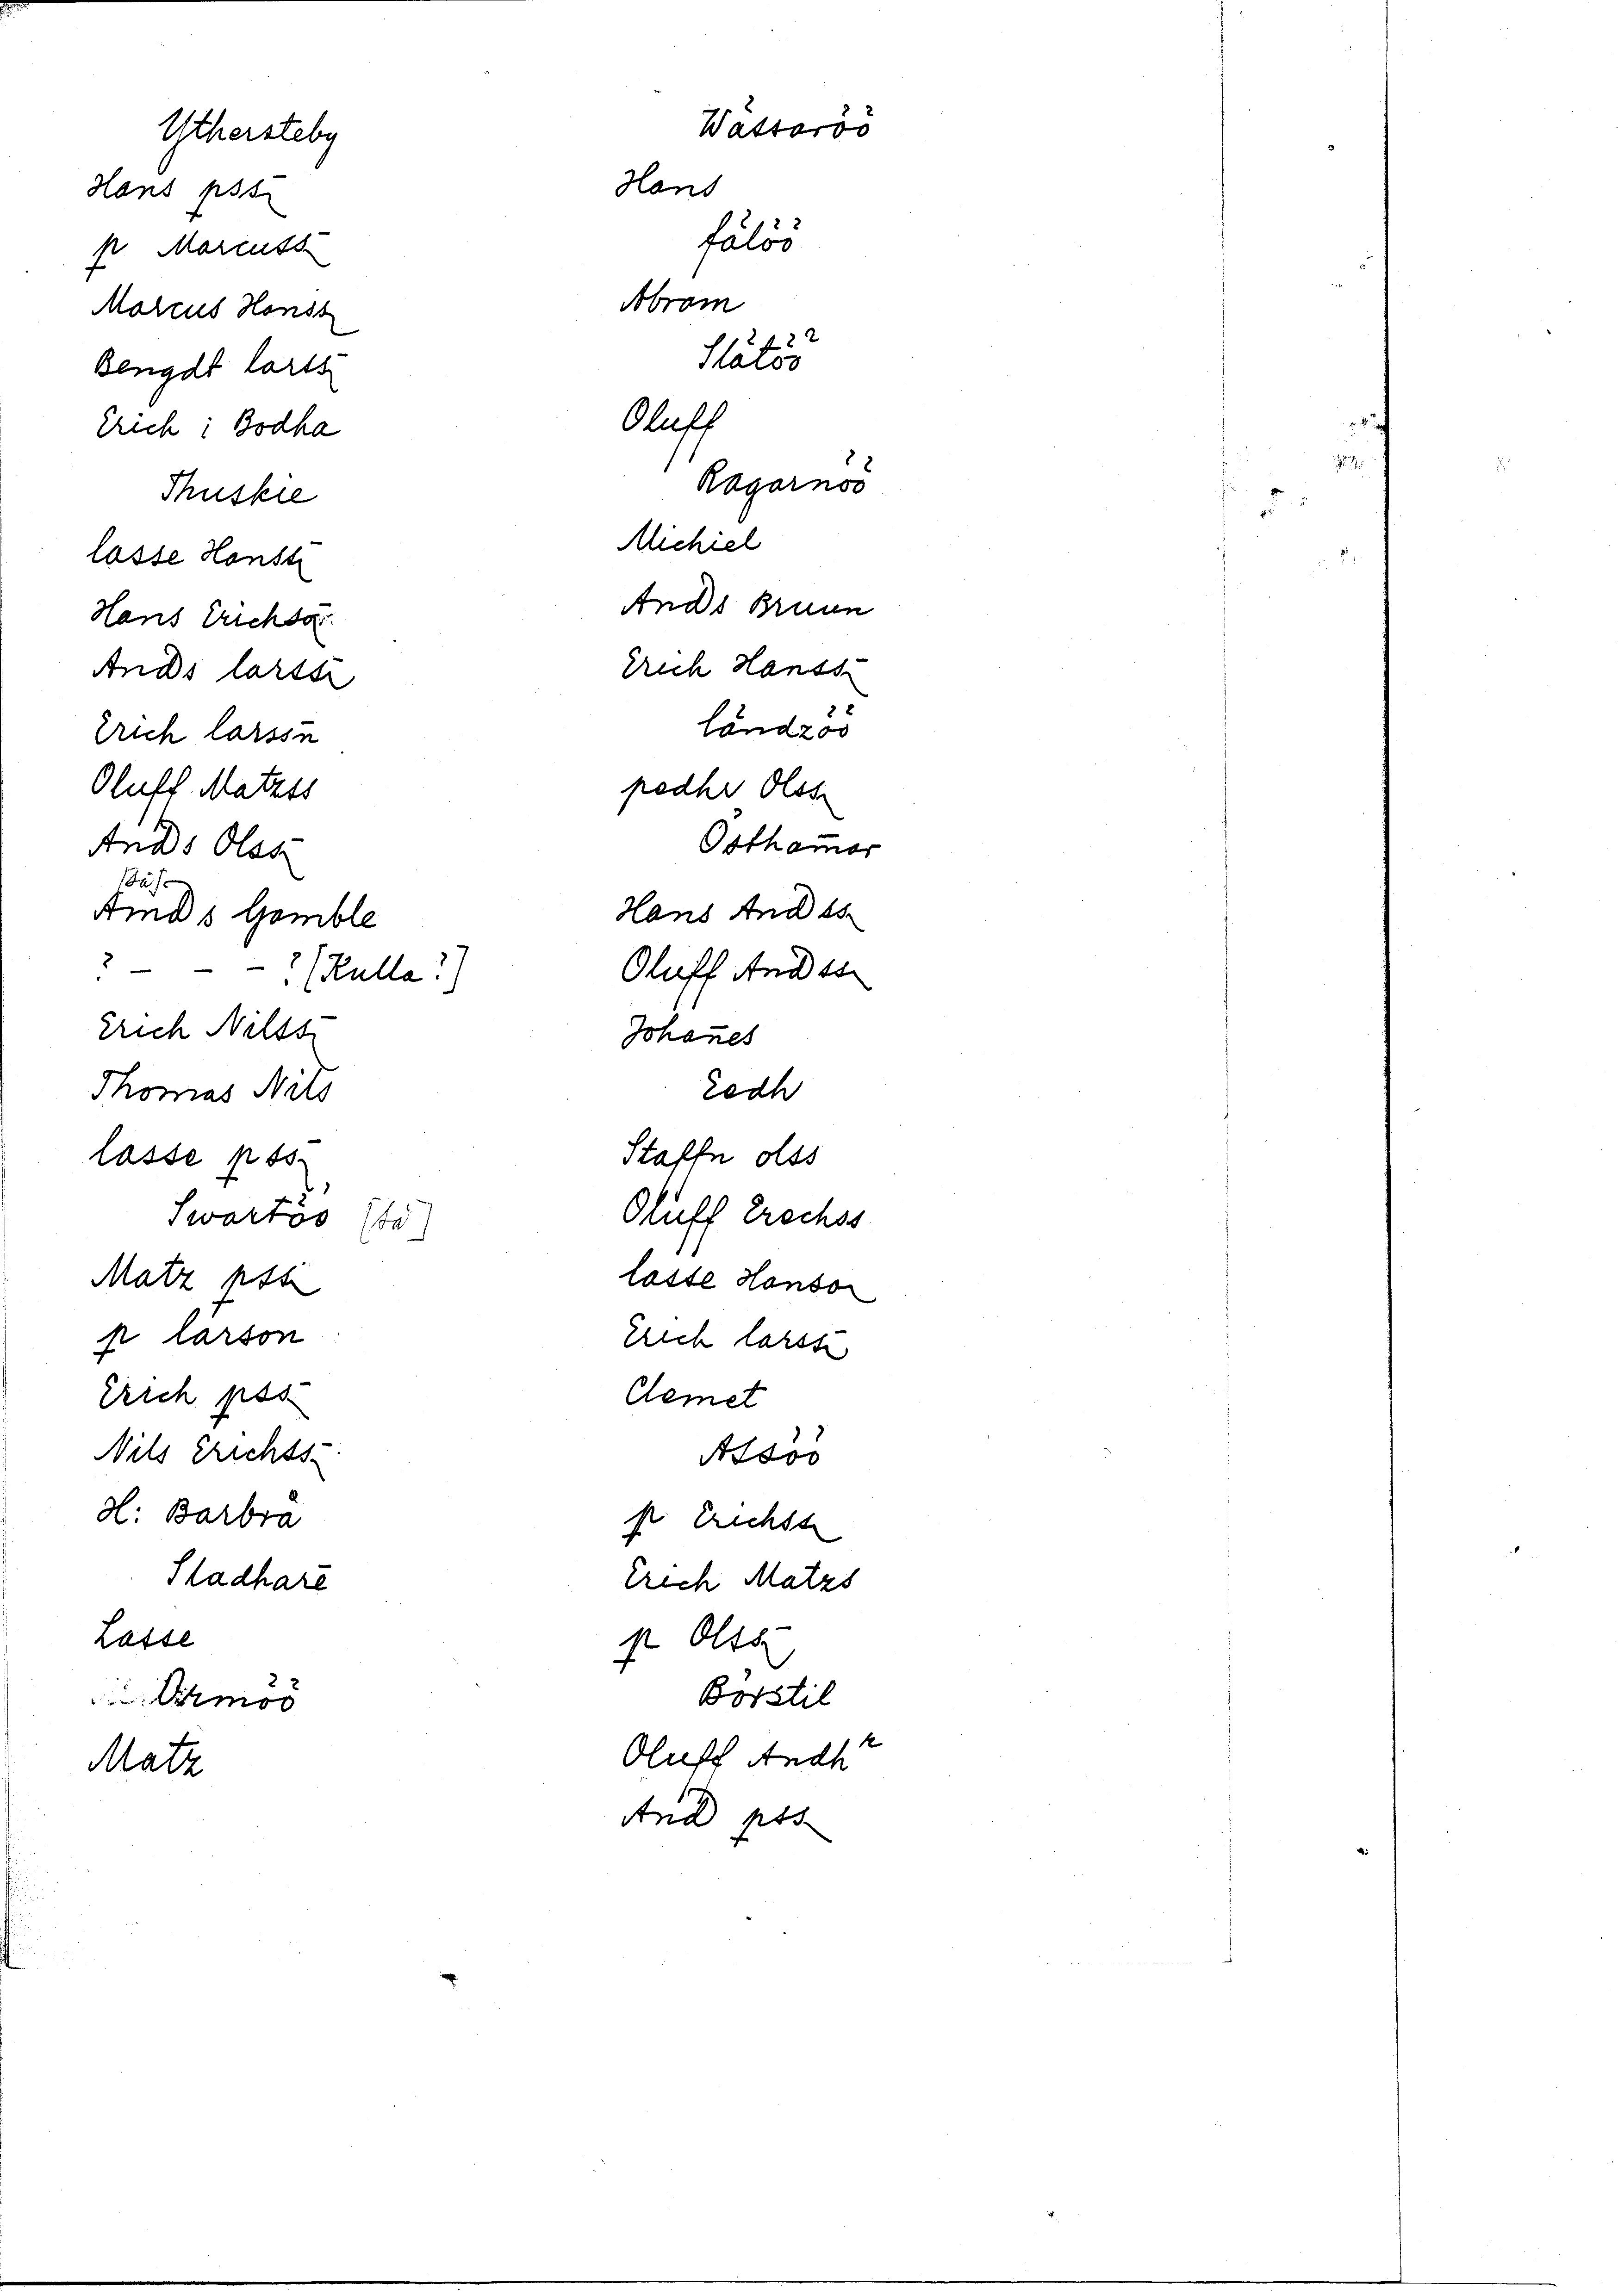 Ythersteby
Hans pss
p Marcuss
Marcus Hanss
Bengdt larss
Erich i Bodha
Thuskie
lasse Hanss
Hans Erichso
Ands larss
Erich larssn
Oluff Matzss
Ands Olss
Ands Gamble
? - - - ? (Kulla?)
Erich Nilss
Thomas Nils
lasse pss
Swartöö
Matz pss
p larson
Erich pss
Nils Erichss
H: Barbra
Stadhare
Lasse
Matz
Wässaröö
Hans
fälöö
Abram
Slätöö
Oluff
Ragarnöö
Michiel
Ands Bruun
Erich Hanss
ländzöö
pedhr Olss
Östham̄ar
Hans Andss
Oluff Andss
Johan̄es
Eedh
Staffn olss
Oluff Erechss
lasse Hanson
Erich larss
Clemet
Assöö
p Erichss
Erich Matzs
p Olss
Börstil
Oluff Andhr
And pss